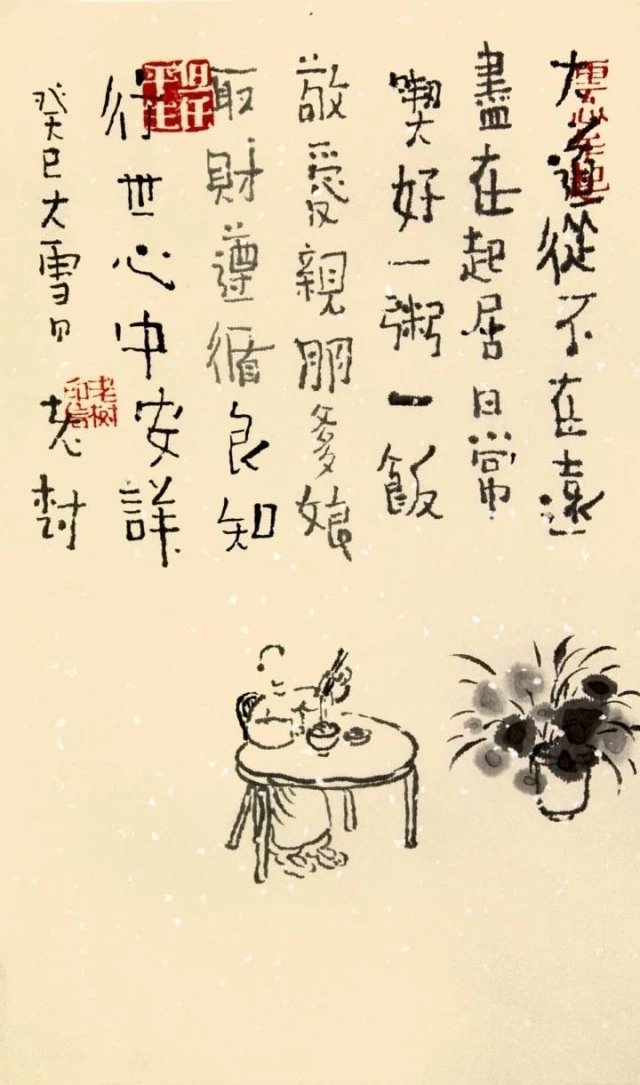 大道從不在遠
盡在起居日常
喫好一粥一飯
敬愛親朋爹娘
取財遵循良知
行世心中安詳
癸巳大雪日 老树
但任平生
老樹印信